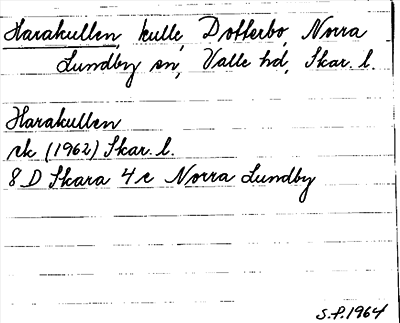 Harakullen, kulle, Dofferbo, Norra
Lundby sn, Valle hd, Skar. l.
Harakullen
rk (1962) Skar. l.
8 D Skara 4 c Norra Lundby
S.P. 1964